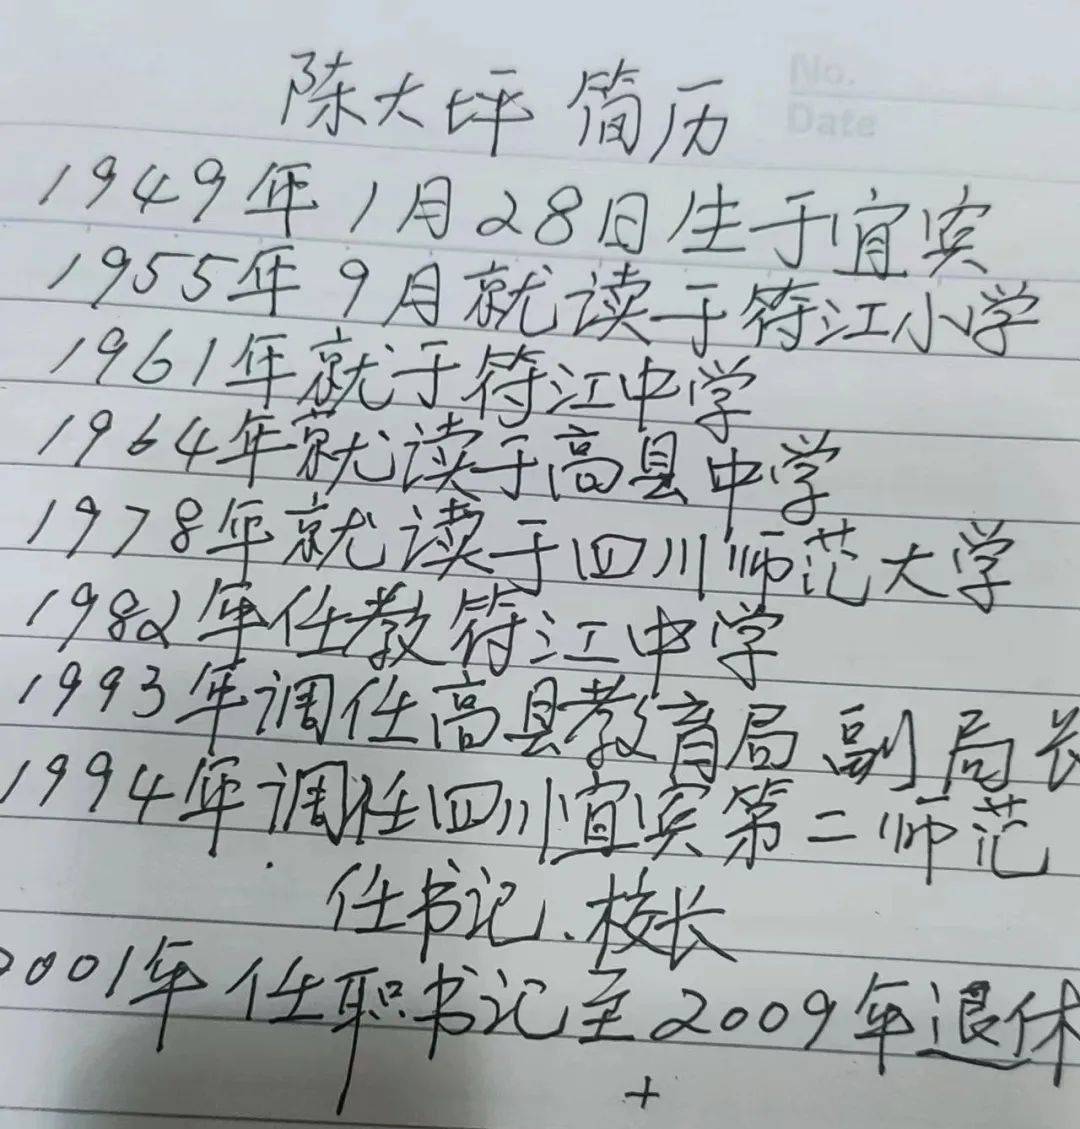 No.
Date
陈大坪 简历
1949年1月28日生于宜宾
1955年9月就读于符江小学
1961年就于符江中学
1964年就读于高县中学
1978年就读于四川师范大学
1982年任教符江中学
1993年调任高县教育局副局长
1994年调任四川宜宾第二师范
任书记、校长
2001年任职书记至2009年退休
+